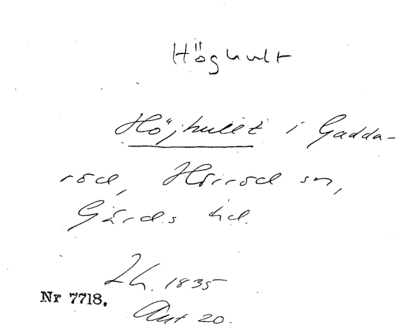 Höghult
Höjhulet i Gadda-
röd, Hörröd sn,
Gärds hd.
Lh. 1835
Nr 7718.
Akt 20.